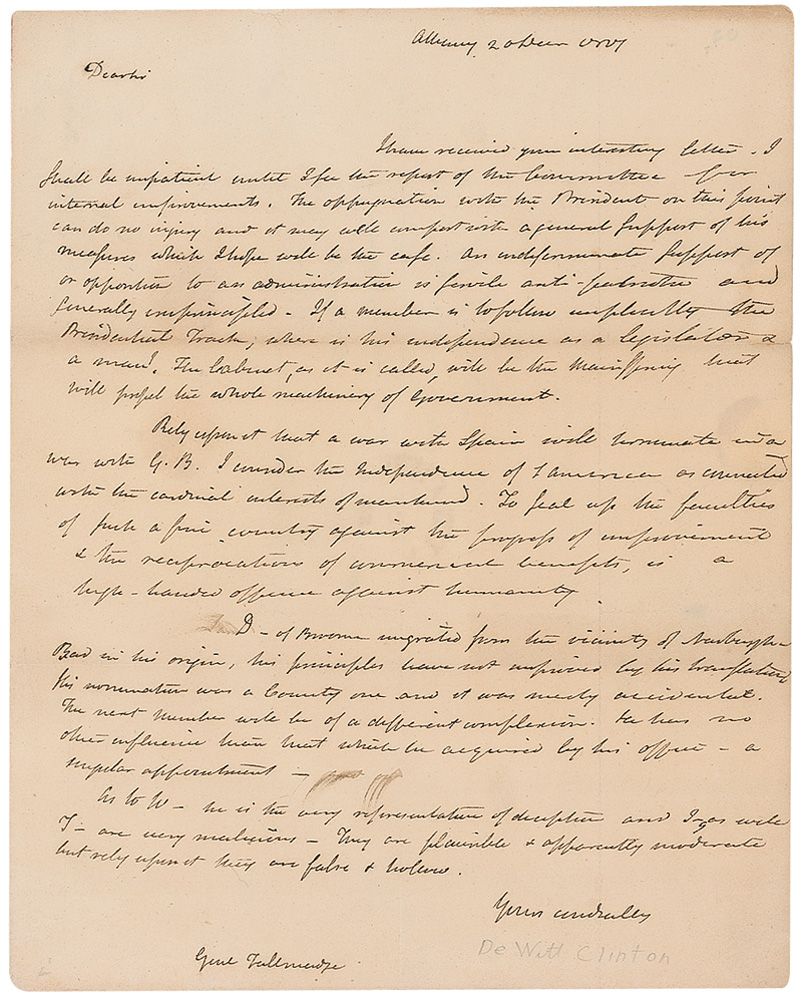 Albany 20 Decr 1817
Dear Sir
I have received your interesting letter. I
shall be impatient until I see the report of the Committee for
internal improvements. The oppugnation with the President on this point
can do no injury and it may well comport with a general support of his
measures which I hope will be the case. An indiscriminate support of
or opposition to an administration is servile anti-patriotic and
generally unprincipled - If a member is to follow implicitly the
Presidential Track, where is his independence as a legislator &
a man? The Cabinet, as it is called, will be the Mainspring that
will propel the whole machinery of Government.
Rely upon it that a war with Spain will terminate in a
war with G. B. I consider the Independence of S America as connected
with the cardinal interests of mankind. To seal up the faculties
of such a fine country against the progress of improvement
& the reciprocations of commercial benefits, is a
high-handed offence against humanity
D - of Broome migrated from the vicinity of Newburgh -
Bad in his origin, his principles have not improved by his translation
His nomination was a County one and it was merely accidental.
The next member will be of a different complexion. He has no
other influence than that which he acquired by his office - a
singular appointment -
As to W - he is the very representative of deception and as well
T - are very malicious - They are plausible & apparently moderate
but rely upon it they are false & hollow.
Yours cordially
De Witt Clinton
Genl Tallmadge